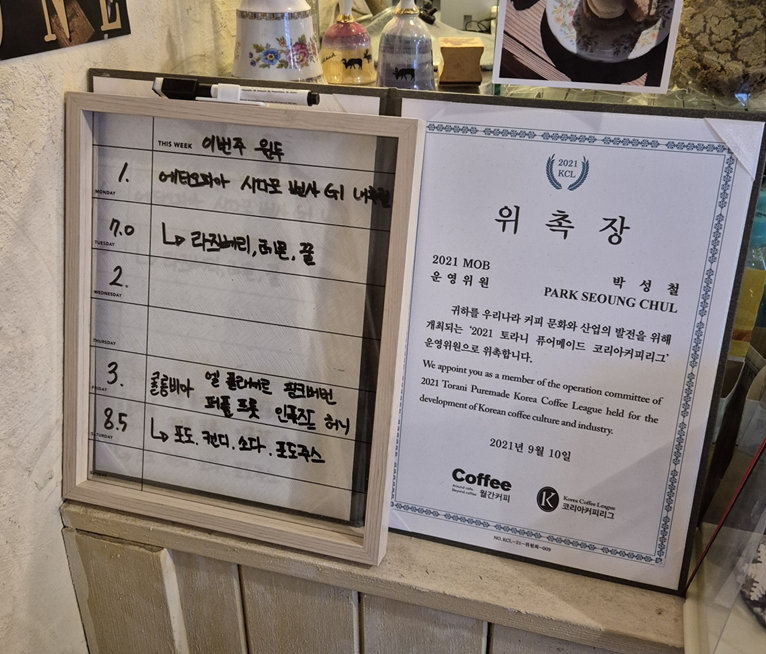 ONE
THIS WEEK 이번주 원두
1. 에티오피아 시다모 벤사 G1 내추럴
MONDAY
7.0 ↳ 라즈베리, 레몬, 꿀
TUESDAY
2.
WEDNESDAY
THURSDAY
3. 콜롬비아 엘 플라세르 핑크버번
FRIDAY
퍼플 프룻 인퓨즈드 허니
8.5 ↳ 포도. 캔디. 소다. 포도주스
SATURDAY
2021
KCL
위촉장
2021 MOB
운영위원
박성철
PARK SEOUNG CHUL
귀하를 우리나라 커피 문화와 산업의 발전을 위해
개최되는 '2021 토라니 퓨어메이드 코리아커피리그'
운영위원으로 위촉합니다.
We appoint you as a member of the operation committee of
2021 Torani Puremade Korea Coffee League held for the
development of Korean coffee culture and industry.
2021년 9월 10일
Coffee
월간커피
K
Korea Coffee League
코리아커피리그
NO.KCL-21-위원회-009